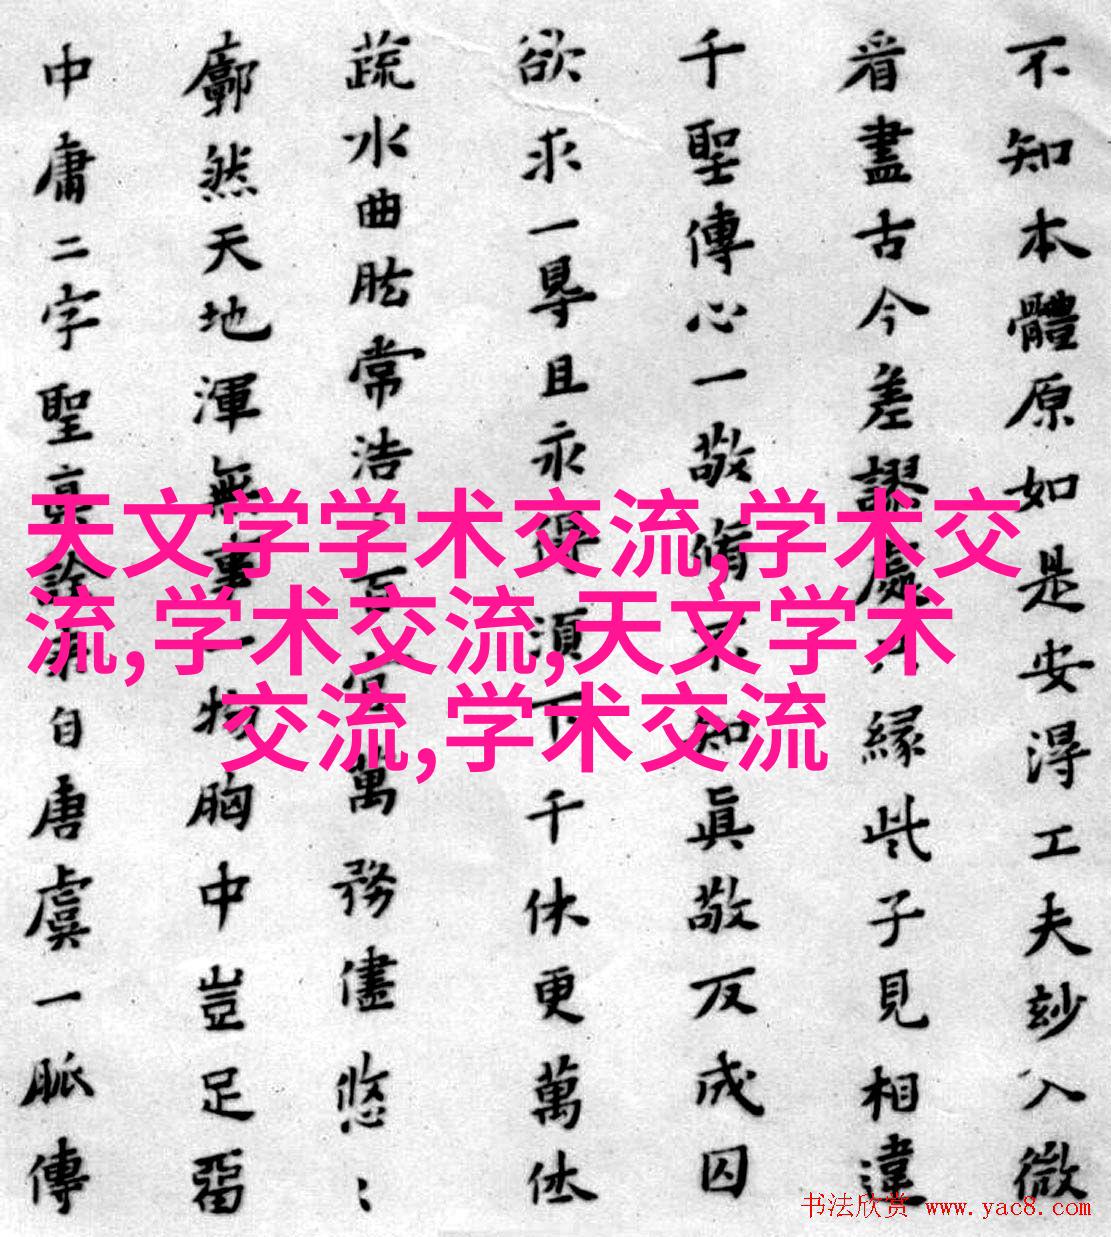 不知本體原如是安淂工夫妙入微
看盡古今差謬處縁此子見相違
千聖傳心一敬脩不知眞敬反成囚
欲求一㝵且永得湏下千休更萬休
蔬水曲肱常浩百官萬務儘悠:
廓然天地渾無事一物胸中豈足畱
中庸二字聖真詮自唐虞一脈傳
天文学学术交流,学术交
流,学术交流,天文学术
交流,学术交流
书法欣赏 www.yac8.com